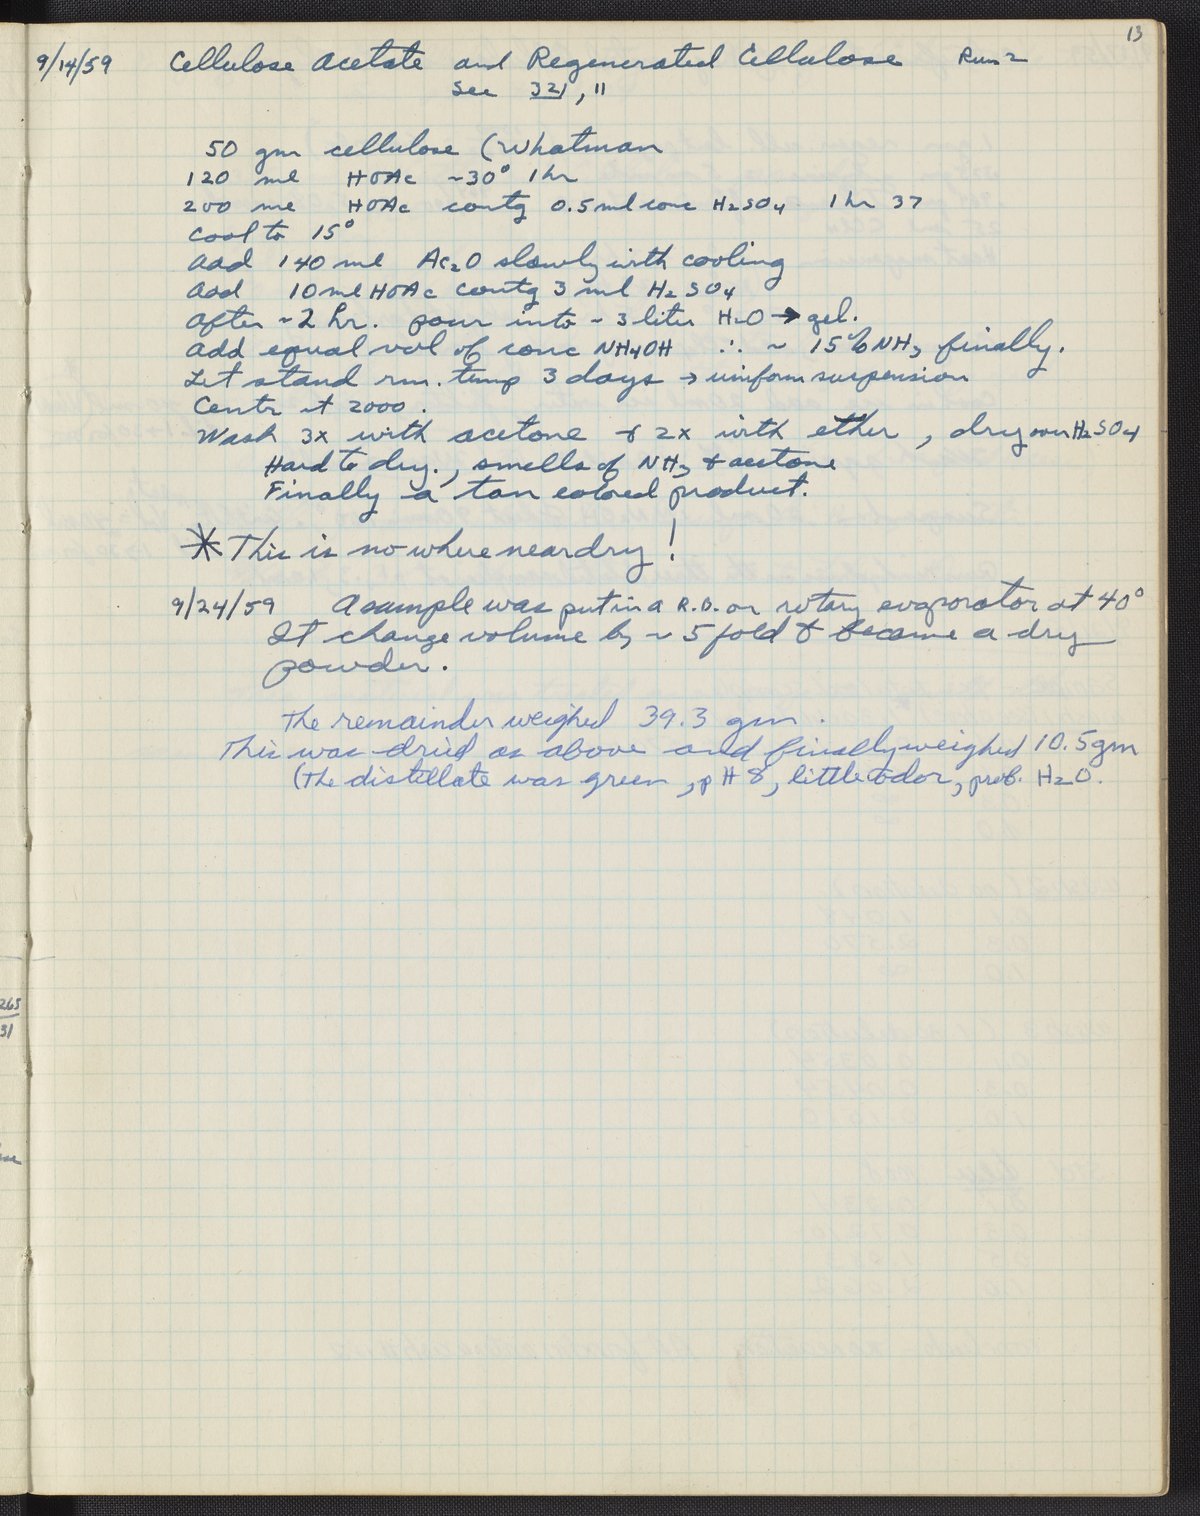 13
9/14/59 Cellulose Acetate and Regenerated Cellulose Run 2
See 321, 11
50 gm cellulose (Whatman
120 ml HOAc ~30° 1 hr
200 ml HOAc contg 0.5 ml conc H2SO4 1 hr 37
Cool to 15°
Add 140 ml Ac2O slowly with cooling
Add 10 ml HOAc contg 3 ml H2SO4
After ~2 hr. pour into ~3 liter H2O → gel.
Add equal vol of conc NH4OH ∴ ~ 15% NH3 finally.
Let stand rm. temp 3 days → uniform suspension
Centr at 2000.
Wash 3x with acetone & 2x with ether, dry over H2SO4
Hard to dry., smells of NH3 & acetone
Finally a tan colored product.
* This is nowhere near dry!
9/24/59 A sample was put in a R.B. on rotary evaporator at 40°
It change volume by ~5 fold & became a dry
powder.
The remainder weighed 39.3 gm.
This was dried as above and finally weighed 10.5 gm
(The distillate was green, pH 8, little odor, prob. H2O.
265
31